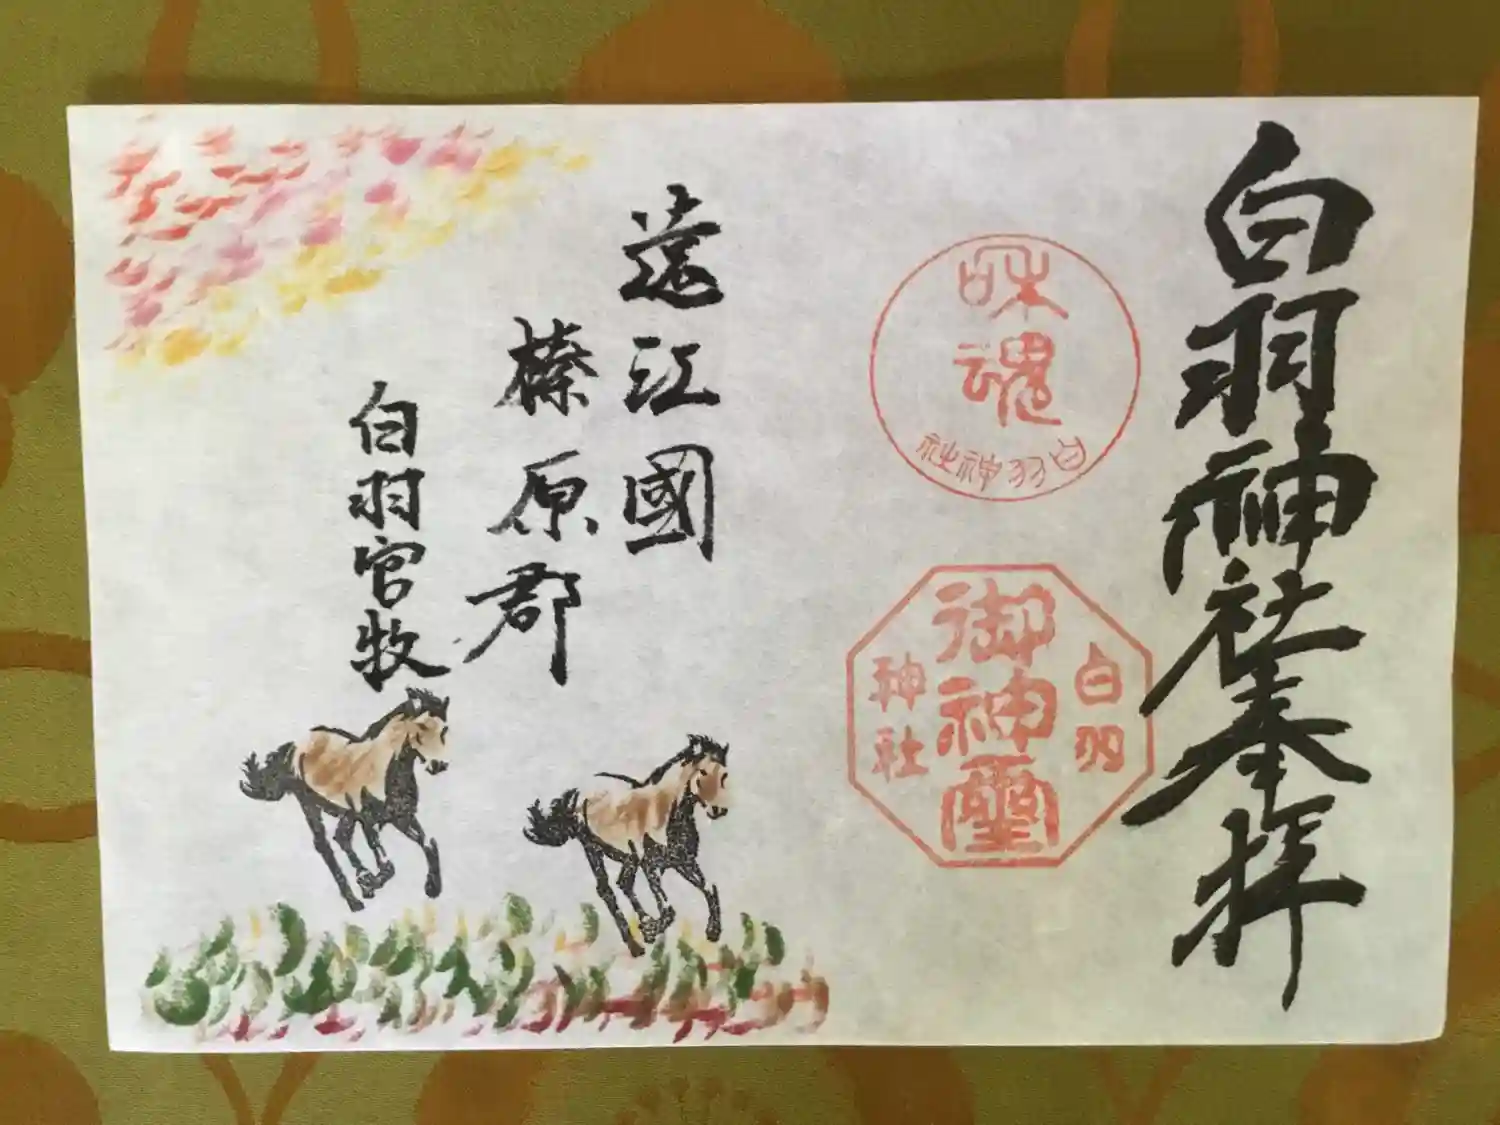 白羽神社奉拝
和魂
白羽神社
白羽
御神霊
神社
遠江國
榛原郡
白羽官牧